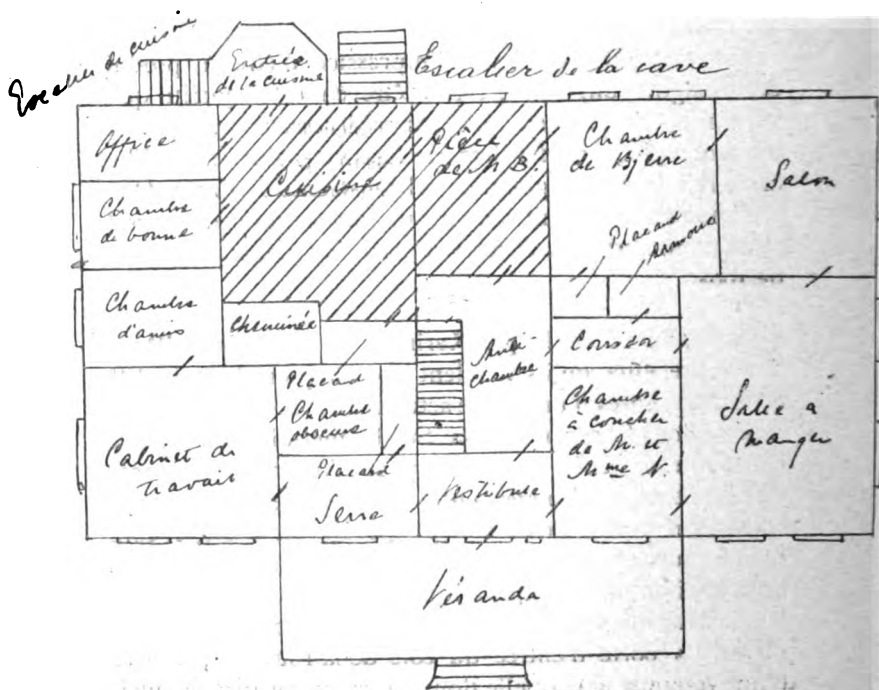 Escalier de cuisine
Entrée
de la cuisine
Escalier de la cave
Office
Cuisine
Pièce
de M B.
Chambre
de Bjerre
Salon
Chambre
de bonne
Placard
Armoire
Chambre
d'amis
Cheminée
Anti-
chambre
Corridor
Placard
Chambre
obscure
Chambre
à coucher
de M. et
Mme V.
Salle à
manger
Cabinet de
travail
Placard
Serre
Vestibule
Véranda